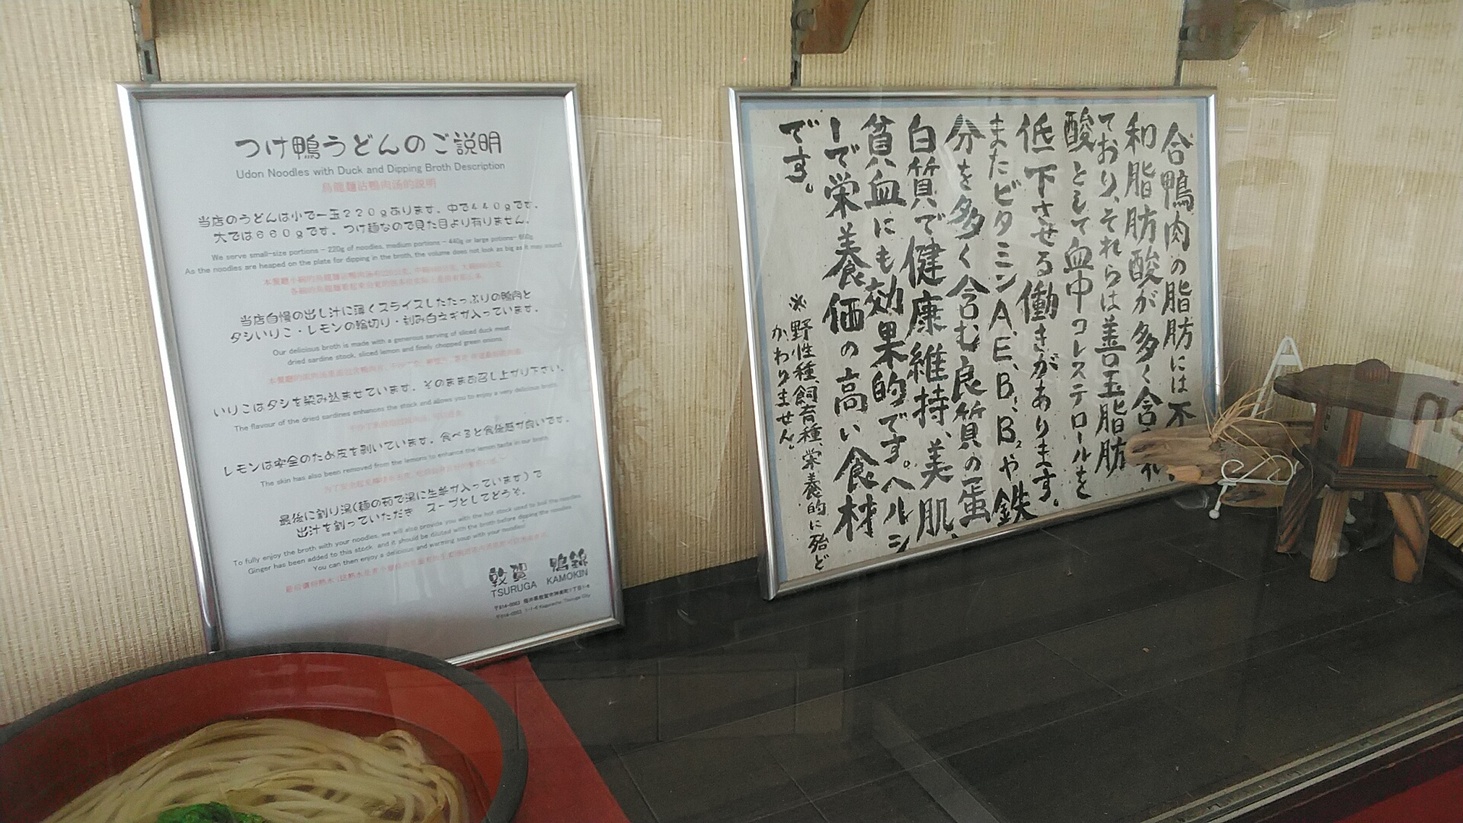 つけ鴨うどんのご説明
Udon Noodles with Duck and Dipping Broth Description
当店のうどんは小で一玉220gあります。中で440gです。
大では660gです。つけ麺なので見た目より有りません。
We serve small-size portions - 220g of noodles, medium portions - 440g or large portions- 660g
As the noodles are heaped on the plate for dipping in the broth, the volume does not look as big as it may sound
当店自慢の出し汁に薄くスライスしたたっぷりの鴨肉と
ダシいりこ・レモンの輪切り・刻み白ネギが入っています。
Our delicious broth is made with a generous serving of sliced duck meat,
dried sardine stock, sliced lemon and finely chopped green onions.
いりこはダシを染み込ませています。そのままお召し上がり下さい。
The flavour of the dried sardines enhances the stock and allows you to enjoy a very delicious broth.
レモンは安全のため皮を剥いています。食べると食欲感が良いです。
The skin has also been removed from the lemons to enhance the lemon taste in our broth.
最後に割り湯(麺の茹で湯に生姜が入っています)で
出汁を割っていただき スープとしてどうぞ。
To fully enjoy the broth with your noodles, we will also provide you with the hot stock used to boil the noodles.
Ginger has been added to this stock and it should be diluted with the broth before dipping the noodles.
You can then enjoy a delicious and warming soup with your noodles!
敦賀 鴨錦
TSURUGA KAMOKIN
合鴨肉の脂肪には不
和脂肪酸が多く含れ
ており、それらは善玉脂肪
酸として血中コレステロールを
低下させる働きがあります。
またビタミンA、E、B、B₂や鉄
分を多く含む良質の蛋
白質で健康維持、美肌、
貧血にも効果的です。ヘルシ
ーで栄養価の高い食材
です。
※野性種、飼育種、栄養的に殆ど
かわりません。